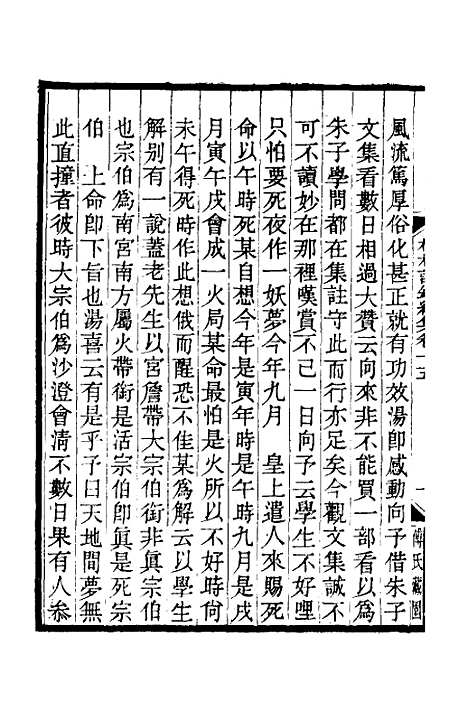 風流篤厚俗化甚正就有功效湯即感動向予借朱子
文集看數日相過大贊云向來非不能買一部看以爲
朱子學問都在集註守此而行亦足矣今觀文集誠不
可不讀妙在那裡嘆賞不已一日向予云學生不好哩
只怕要死夜作一妖夢今年九月　皇上遣人來賜死
命以午時死某自想今年是寅年時是午時九月是戌
月寅午戌會成一火局某命最怕是火所以不好時尙
未午得死時作此想俄而醒恐不佳某爲解云以學生
解别有一說蓋老先生以宮詹帶大宗伯銜非眞宗伯
也宗伯爲南宮南方屬火帶銜是活宗伯卽眞是死宗
伯　上命卽下旨也湯喜云有是乎予曰天地間夢無
此直撞者彼時大宗伯爲沙澄會清不數日果有人叅